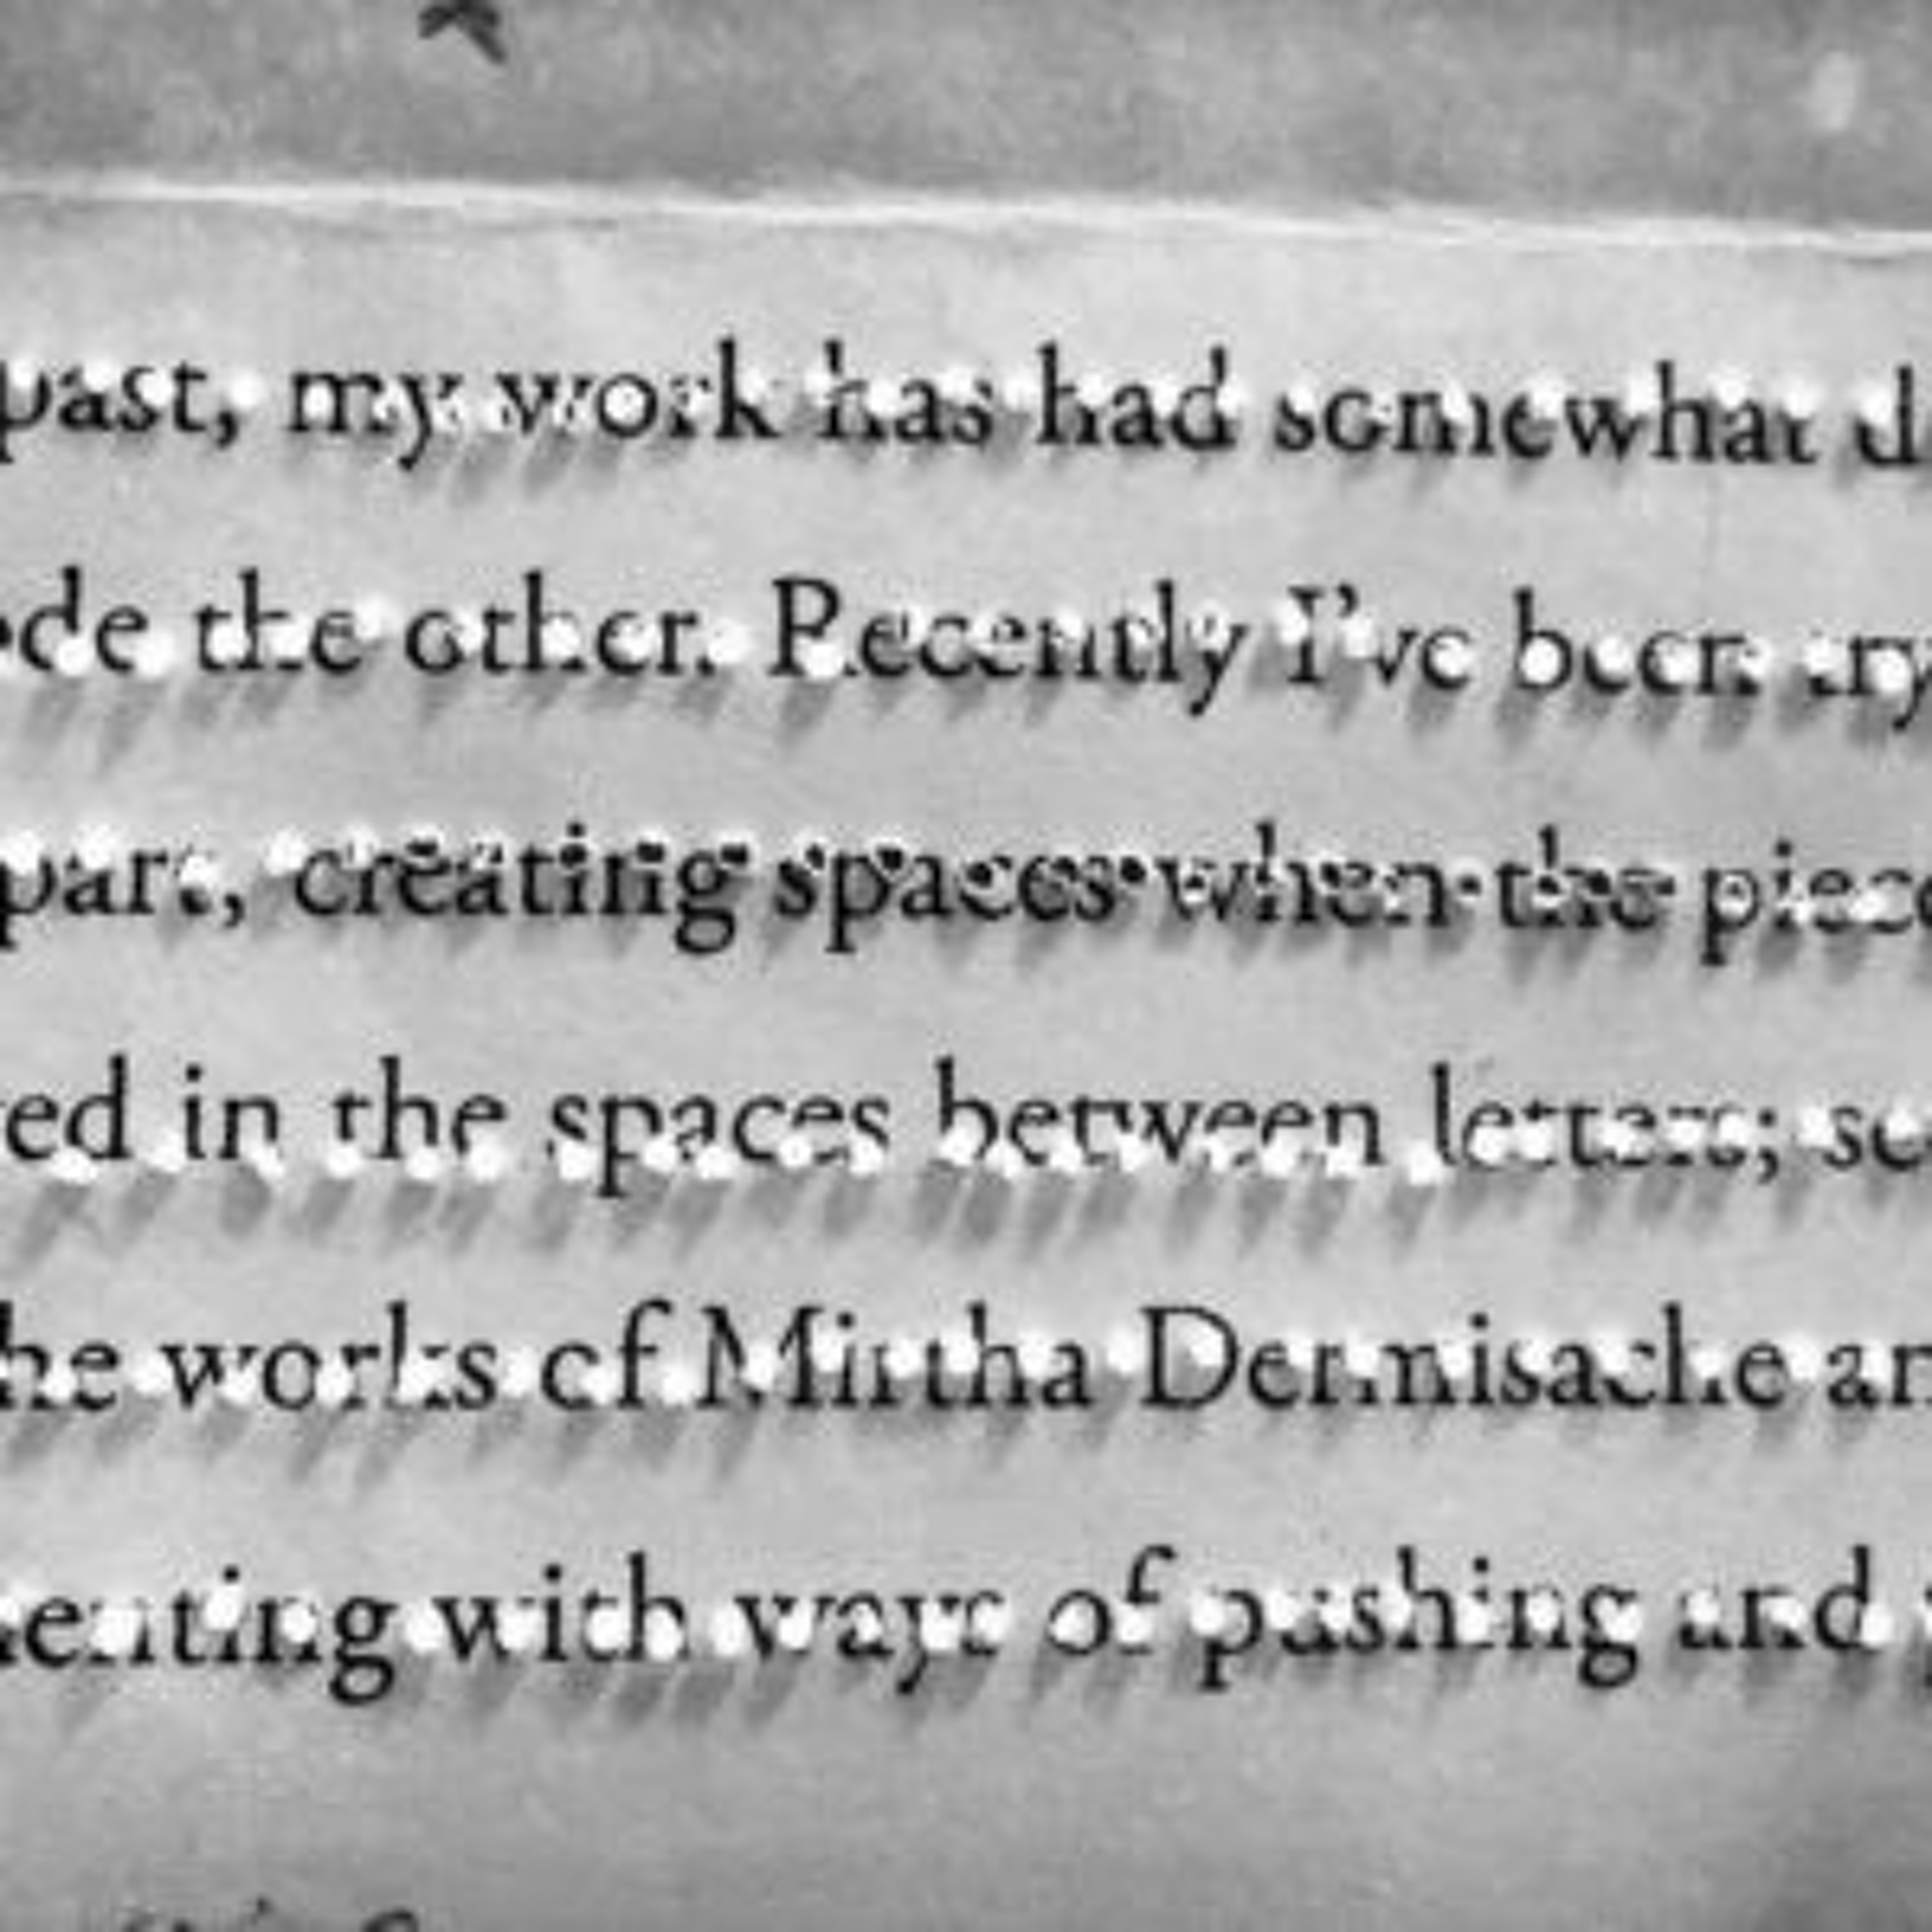 past, my work has had somewhat d
ede the other. Recently I've been try
part, creating spaces when the piece
ed in the spaces between letters; se
he works of Mirtha Dermisache an
enting with ways of pushing and